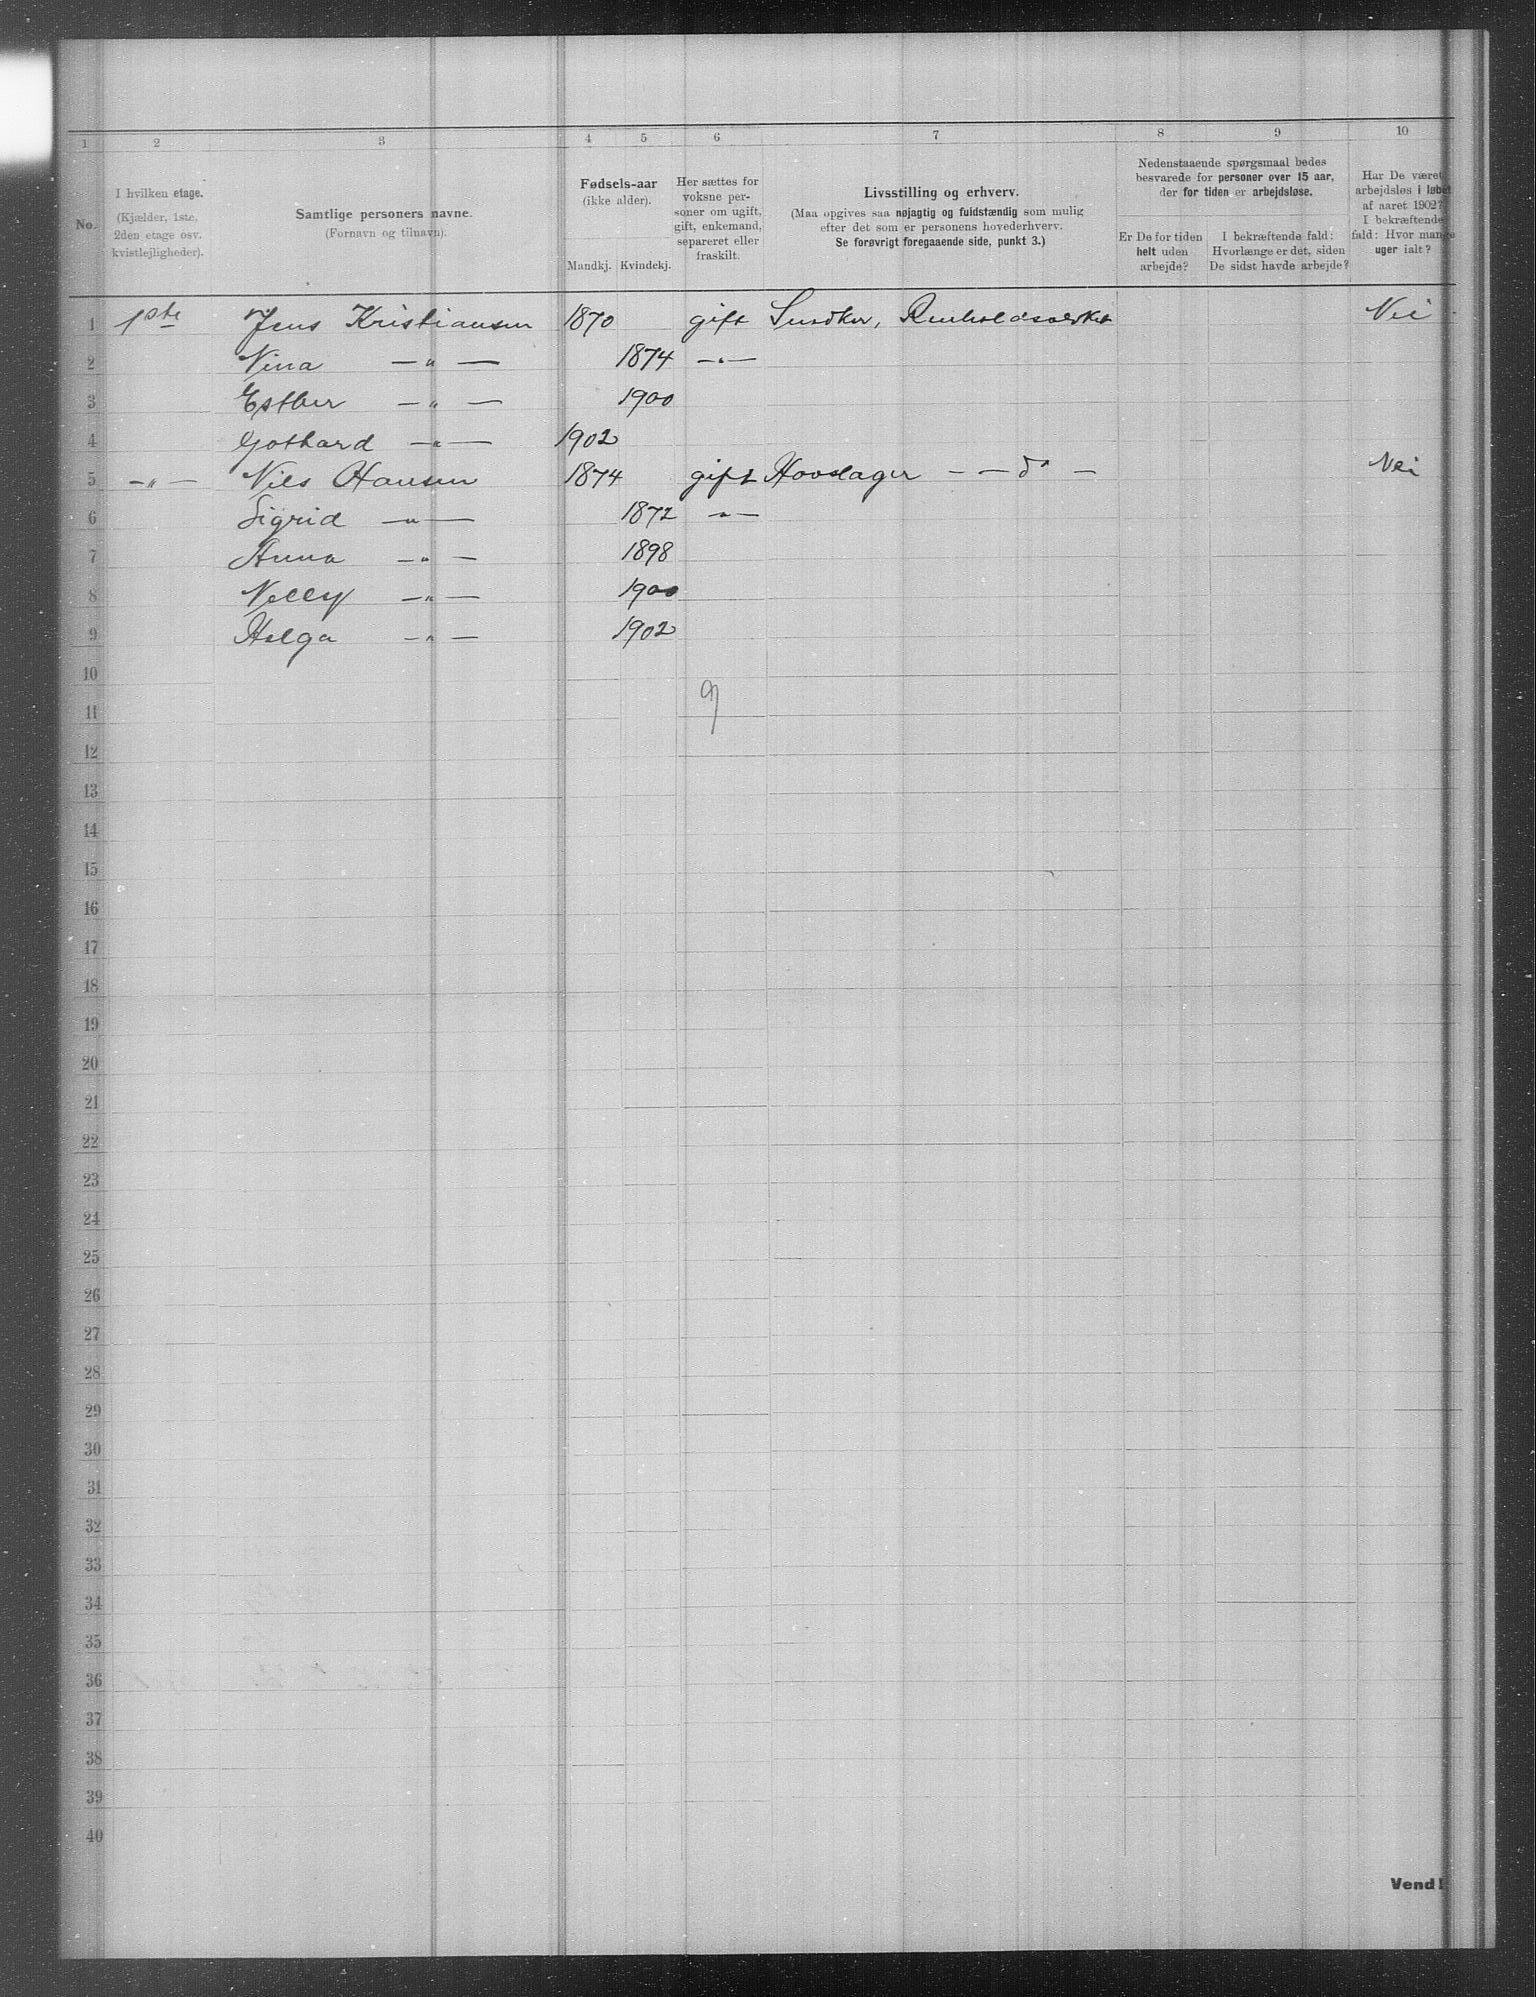 1 2 3 4 5 6 7 8 9 10
No.
I hvilken etage.
(Kjælder, 1ste,
2den etage osv.
kvistlejligheder).
Samtlige personers navne.
(Fornavn og tilnavn).
Fødsels-aar
(ikke alder).
Mandkj. Kvindekj.
Her sættes for
voksne per-
soner om ugift,
gift, enkemand,
separeret eller
fraskilt.
Livsstilling og erhverv.
(Maa opgives saa nøjagtig og fuldstændig som mulig
efter det som er personens hovederhverv.
Se forøvrigt foregaaende side, punkt 3.)
Nedenstaaende spørgsmaal bedes
besvarede for personer over 15 aar,
der for tiden er arbejdsløse.
Er De for tiden
helt uden
arbejde?
I bekræftende fald:
Hvorlænge er det, siden
De sidst havde arbejde?
Har De været
arbejdsløs i løbet
af aaret 1902?
I bekræftende
fald: Hvor mange
uger ialt?
1 1ste Jens Kristiansen 1870 gift Smedker, Renholdsverket Nei
2 Nina —„— 1874 —„—
3 Esther —„— 1900
4 Gothard —„— 1902
5 —„— Nils Hansen 1874 gift Hovslager — — do — Nei
6 Sigrid —„— 1872 —„—
7 Anna —„— 1898
8 Nelly —„— 1900
9 Helga —„— 1902
10
9
11
12
13
14
15
16
17
18
19
20
21
22
23
24
25
26
27
28
29
30
31
32
33
34
35
36
37
38
39
40
Vend!